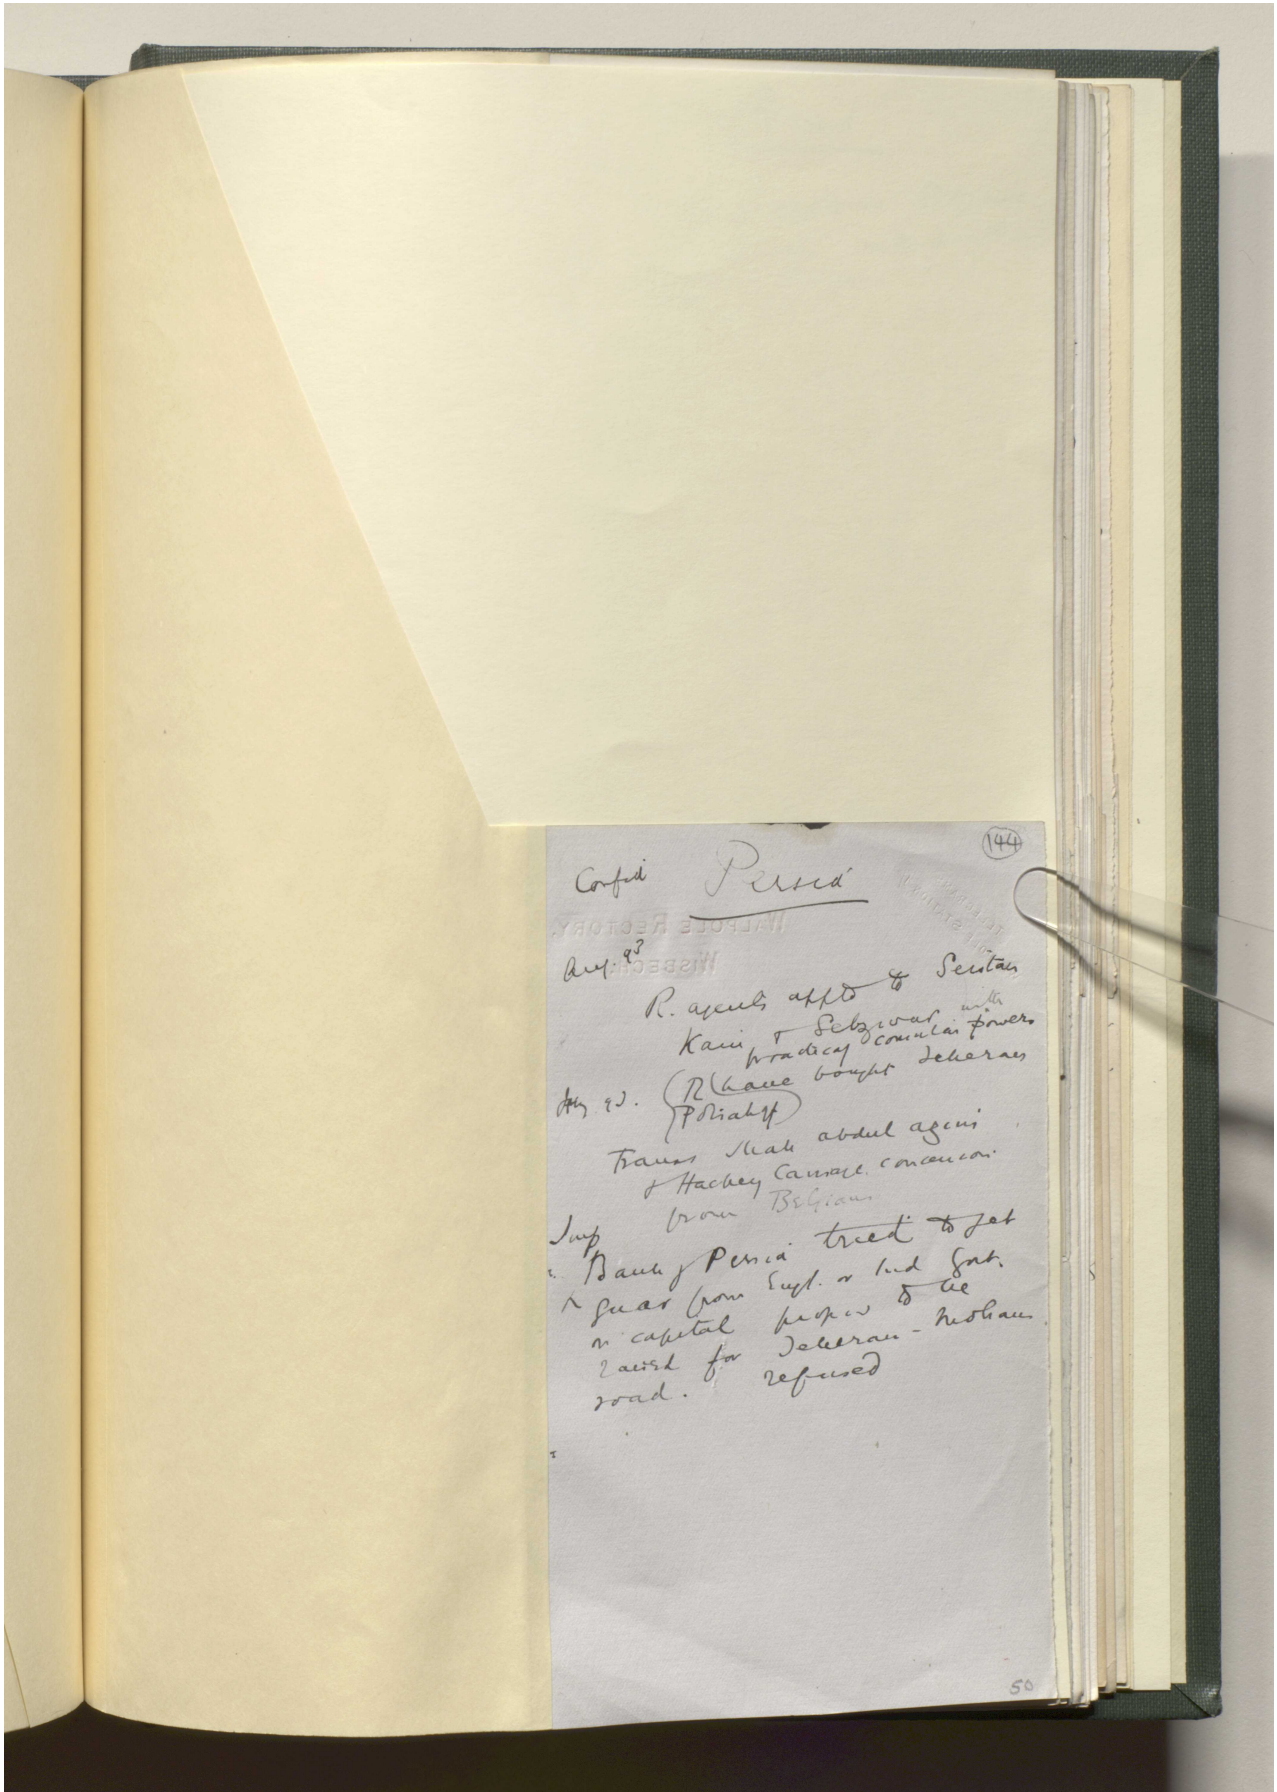 144
Confid Persia
WALPOLE RECTORY,
WISBECH.
Aug. 93
R. agents apptd to Seistan
Kain & Sebzwar with
practical consular powers
93. (R have bought Teheran
Poliakoff)
Trams Shah abdul azim
& Hackney Carriage concession
from Belgians
Imp
Bank of Persia tried to get
guar from Engl. or Ind Govt.
on capital propose to be
raised for Teheran - Moham
road. refused
50